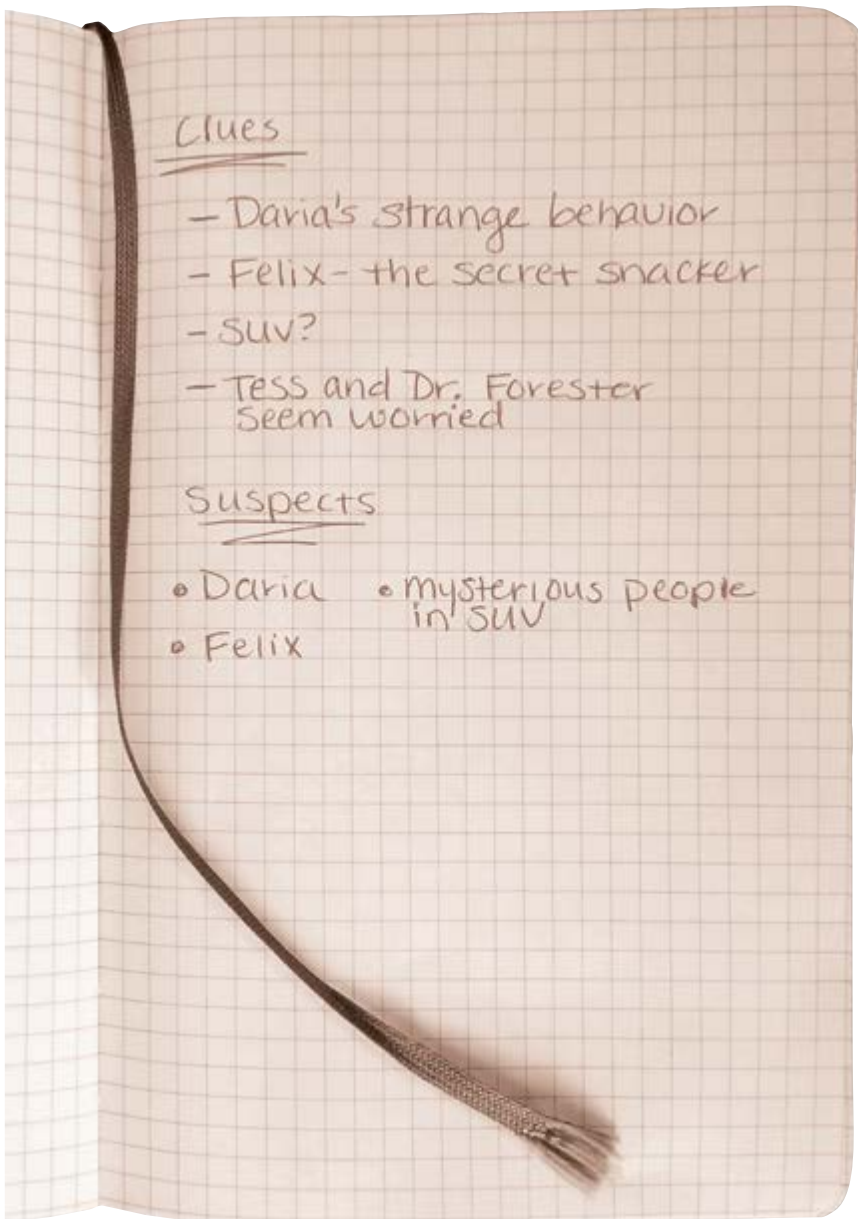 Clues
- Daria's strange behavior
- Felix - the secret snacker
- SUV?
- Tess and Dr. Forester
seem worried
Suspects
• Daria
• Felix
• mysterious people
in SUV